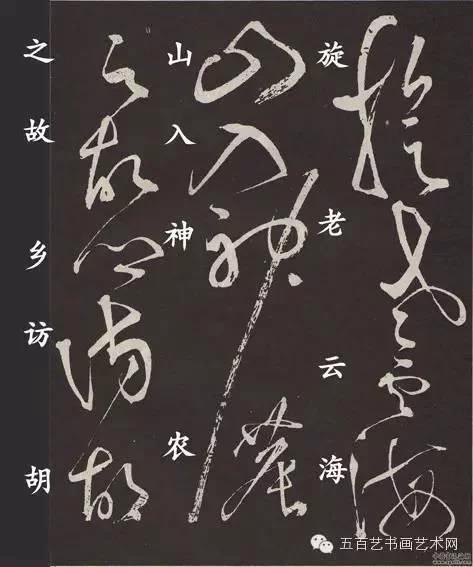 旋老云海
山入神农
之故乡访胡
五百艺书画艺术网